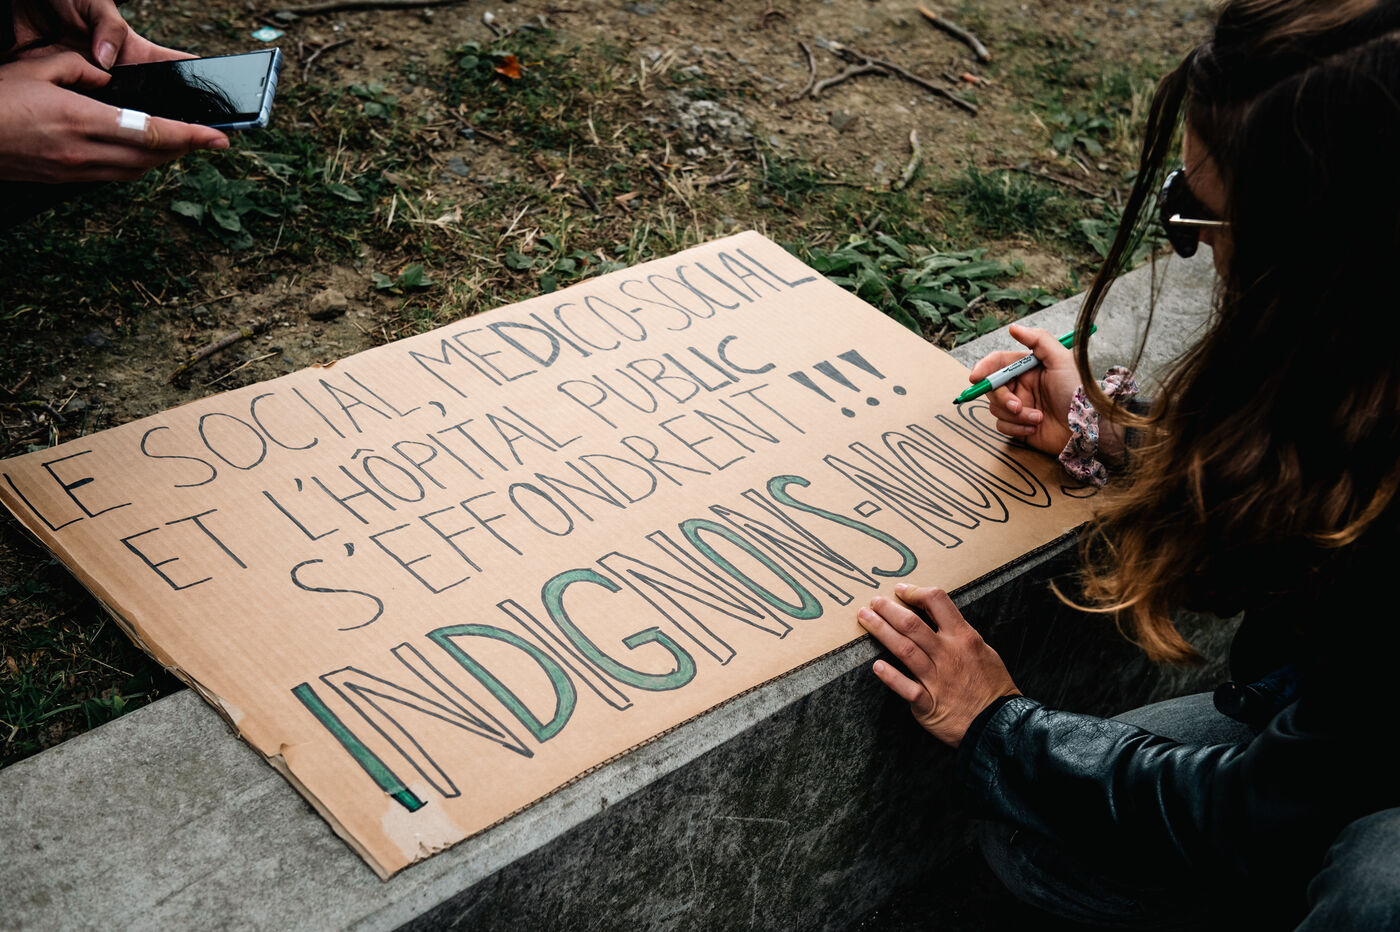 LE SOCIAL, MEDICO-SOCIAL
ET L'HÔPITAL PUBLIC
S'EFFONDRENT !!!
INDIGNONS-NOUS